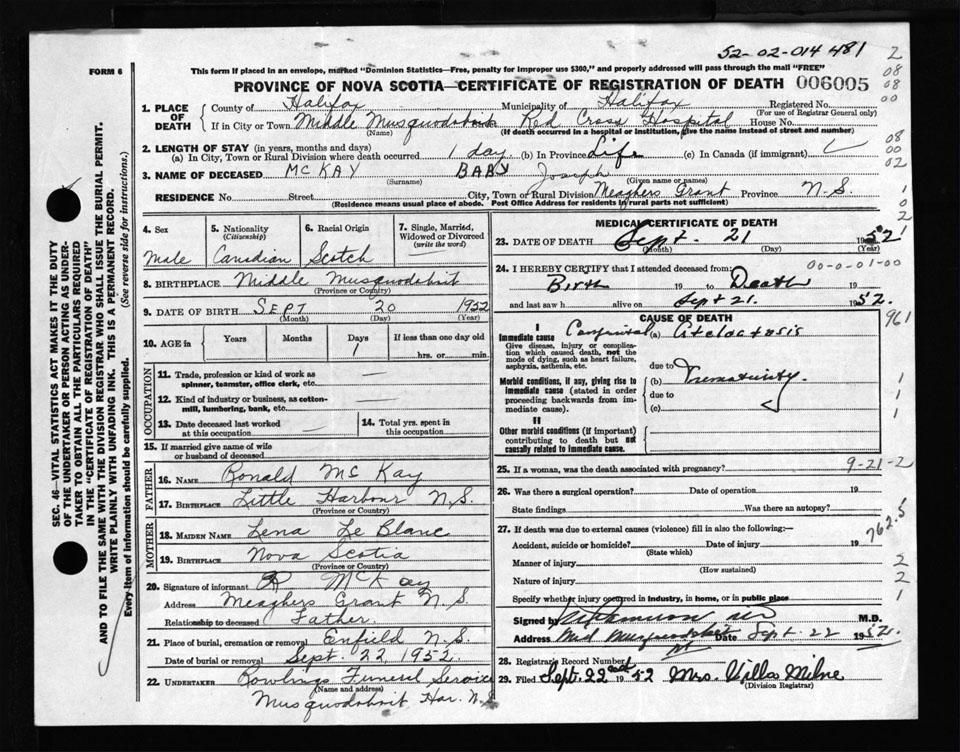 52-02-014 481
FORM 6
This form if placed in an envelope, marked "Dominion Statistics—Free, penalty for improper use $300," and properly addressed will pass through the mail "FREE"
PROVINCE OF NOVA SCOTIA—CERTIFICATE OF REGISTRATION OF DEATH 006005
SEC. 46—VITAL STATISTICS ACT MAKES IT THE DUTY
OF THE UNDERTAKER OR PERSON ACTING AS UNDER-
TAKER TO OBTAIN ALL THE PARTICULARS REQUIRED
IN THE "CERTIFICATE OF REGISTRATION OF DEATH"
AND TO FILE THE SAME WITH THE DIVISION REGISTRAR WHO SHALL ISSUE THE BURIAL PERMIT.
WRITE PLAINLY WITH UNFADING INK. THIS IS A PERMANENT RECORD.
Every item of information should be carefully supplied. (See reverse side for instructions.)
1. PLACE OF DEATH
County of Halifax Municipality of Halifax Registered No.
(For use of Registrar General only)
If in City or Town Middle Musquodoboit Red Cross Hospital House No.
(Name) (If death occurred in a hospital or institution, give the name instead of street and number)
2. LENGTH OF STAY (in years, months and days)
(a) In City, Town or Rural Division where death occurred 1 day (b) In Province Life (c) In Canada (if immigrant)
3. NAME OF DECEASED McKAY BABY Joseph
(Surname) (Given name or names)
RESIDENCE No. Street City, Town or Rural Division Meaghers Grant Province N.S.
(Residence means usual place of abode. Post Office Address for residents in rural parts not sufficient)
4. Sex Male
5. Nationality (Citizenship) Canadian
6. Racial Origin Scotch
7. Single, Married, Widowed or Divorced (write the word)
8. BIRTHPLACE Middle Musquodoboit
(Province or Country)
9. DATE OF BIRTH SEPT 20 1952
(Month) (Day) (Year)
10. AGE in Years Months Days 1 If less than one day old
hrs. or min.
OCCUPATION
11. Trade, profession or kind of work as
spinner, teamster, office clerk, etc.
12. Kind of industry or business, as cotton-
mill, lumbering, bank, etc.
13. Date deceased last worked
at this occupation
14. Total yrs. spent in
this occupation
15. If married give name of wife
or husband of deceased
FATHER
16. NAME Ronald McKay
17. BIRTHPLACE Little Harbour N.S.
(Province or Country)
MOTHER
18. MAIDEN NAME Lena Le Blanc
19. BIRTHPLACE Nova Scotia
(Province or Country)
20. Signature of informant R McKay
Address Meaghers Grant N.S.
Relationship to deceased Father.
21. Place of burial, cremation or removal Enfield N.S.
Date of burial or removal Sept. 22, 1952.
22. UNDERTAKER Rowlings Funeral Service
(Name and address)
Musquodoboit Har. N.S.
MEDICAL CERTIFICATE OF DEATH
23. DATE OF DEATH Sept. 21 1952
(Month) (Day) (Year)
24. I HEREBY CERTIFY that I attended deceased from: 00-0-01-00
Birth 19 to Death 19
and last saw h alive on Sept 21. 1952.
CAUSE OF DEATH
I
Immediate cause (a) Congenital atelactasis
Give disease, injury or complica-
tion which caused death, not the
mode of dying, such as heart failure,
asphyxia, asthenia, etc.
due to
Morbid conditions, if any, giving rise to
immediate cause (stated in order
proceeding backwards from im-
mediate cause).
(b) Prematurity.
due to
(c)
II
Other morbid conditions (if important)
contributing to death but not
causally related to immediate cause.
25. If a woman, was the death associated with pregnancy? 9-21-2
26. Was there a surgical operation? Date of operation 19
State findings Was there an autopsy?
27. If death was due to external causes (violence) fill in also the following:—
Accident, suicide or homicide? Date of injury 19
(State which)
Manner of injury
(How sustained)
Nature of injury
Specify whether injury occurred in industry, in home, or in public place
Signed by M.D.
Address Mid Musquodoboit Date Sept. 22 1952.
28. Registrar's Record Number
29. Filed Sept. 22nd 1952 Mrs. Willa Milne
(Division Registrar)
2
08
08
00
08
00
02
1
0
2
961
1
1
1
762.5
2
2
1